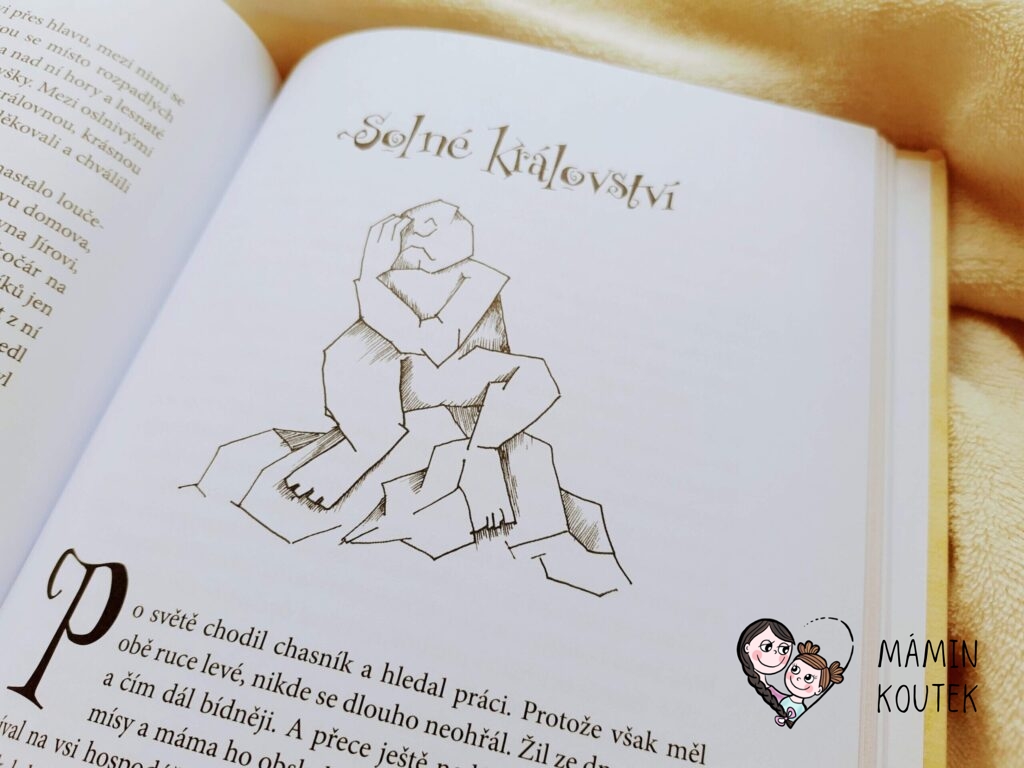 vi přes hlavu, mezi nimi se
ou se místo rozpadlých
a nad ní hory a lesnaté
yšky. Mezi oslnivými
královnou, krásnou
ěkovali a chválili
nastalo louče-
vu domova,
yna Jírovi,
kočár na
íků jen
t z ní
edl
yl
Solné království
Po světě chodil chasník a hledal práci. Protože však měl
obě ruce levé, nikde se dlouho neohřál. Žil ze dn
a čím dál bídněji. A přece ještě ne
mísy a máma ho obsl
íval na vsi hospodá
MÁMIN
KOUTEK